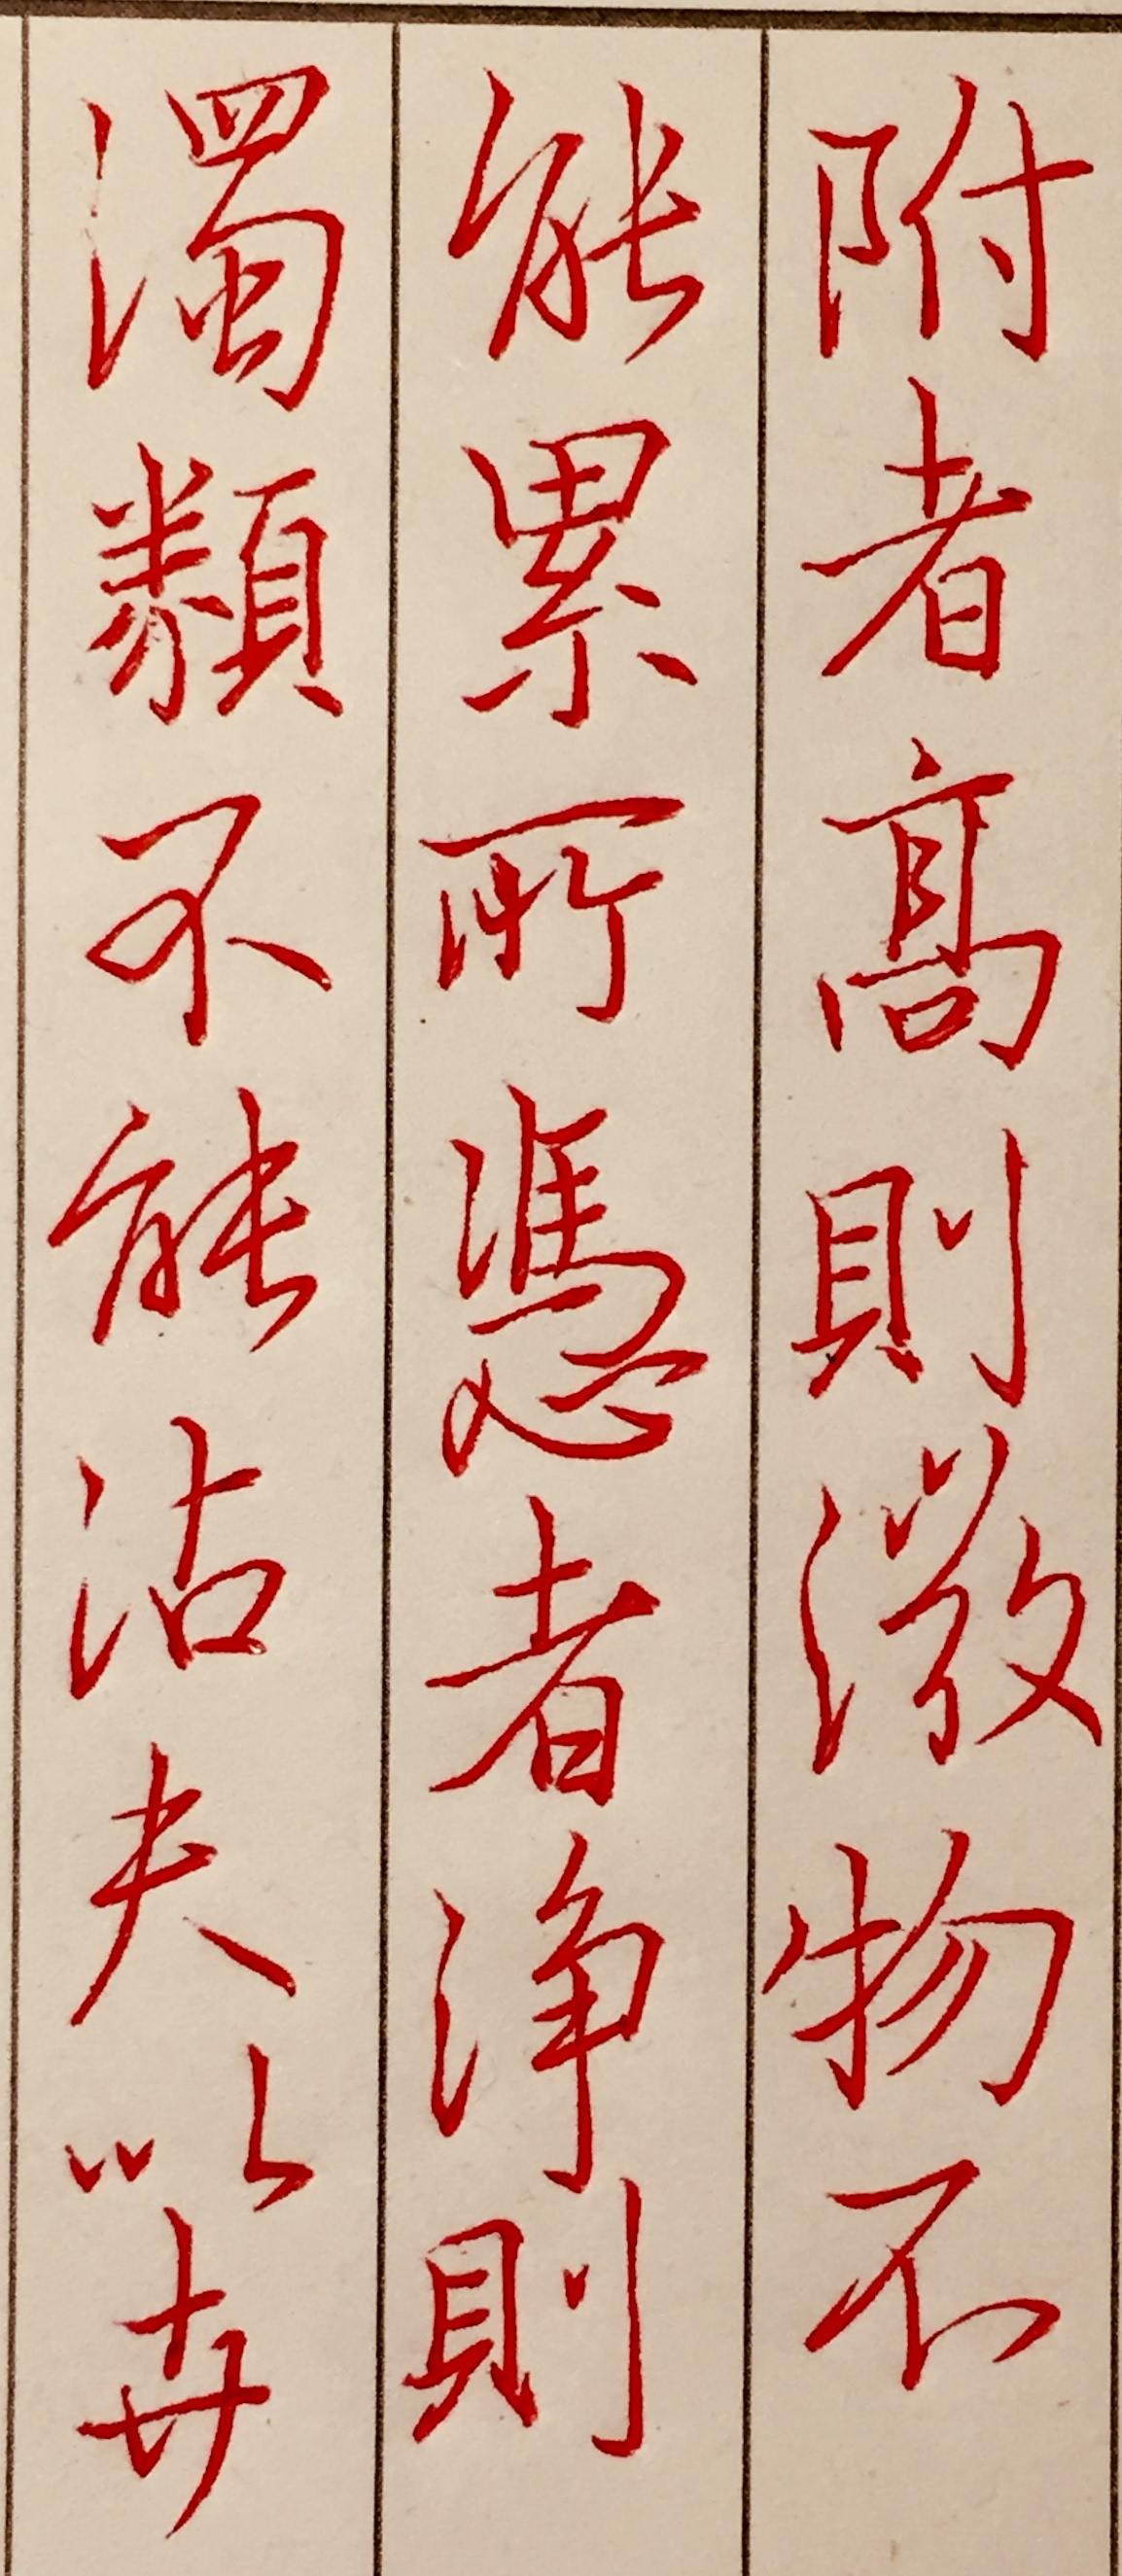 附者高則微物不
能累所憑者浄則
濁類不能沾夫以卉